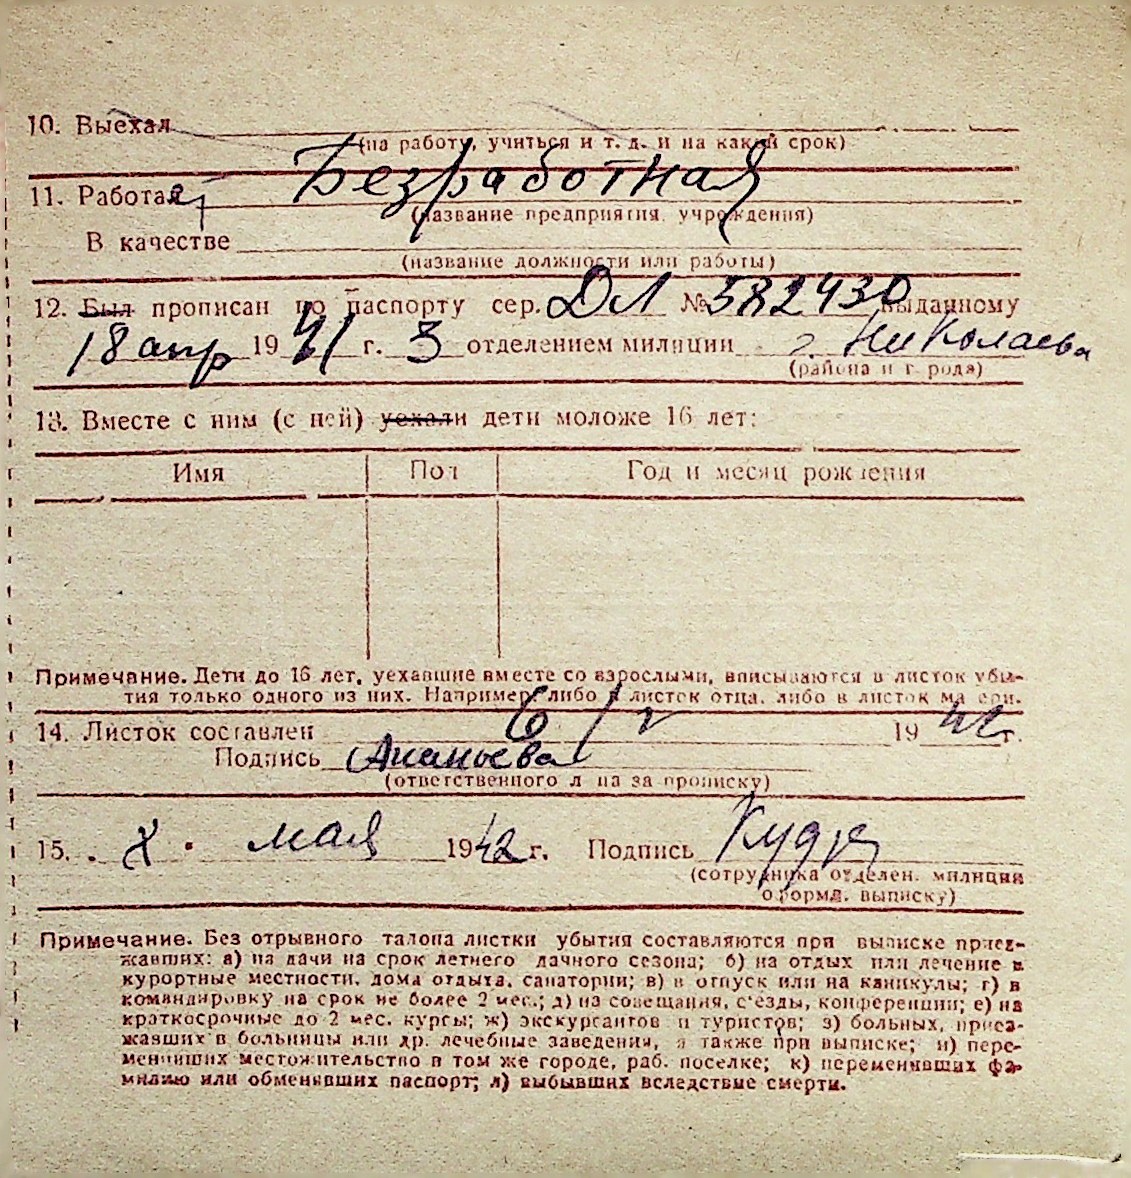 10. Выехал
(на работу, учиться и т. д. и на какой срок)
Безработная
11. Работал
(название предприятия, учреждения)
В качестве
(название должности или работы)
12. Был прописан по паспорту сер. ДЛ № 582430 выданному
18 апр 1941 г. 3 отделением милиции г. Николаева
(района и города)
13. Вместе с ним (с ней) уехали дети моложе 16 лет:
Имя Пол Год и месяц рождения
Примечание. Дети до 16 лет, уехавшие вместе со взрослыми, вписываются в листок убы-
тия только одного из них. Например, либо в листок отца, либо в листок матери.
14. Листок составлен 6/V 1942 г.
Подпись Ананьева
(ответственного лица за прописку)
15. мая 1942 г. Подпись
(сотрудника отделен. милиции
оформл. выписку)
Примечание. Без отрывного талона листки убытия составляются при выписке приез-
жавших: а) на дачи на срок летнего дачного сезона; б) на отдых или лечение в
курортные местности, дома отдыха, санатории; в) в отпуск или на каникулы; г) в
командировку на срок не более 2 мес.; д) на совещания, с'езды, конференции; е) на
краткосрочные до 2 мес. курсы; ж) экскурсантов и туристов; з) больных, приез-
жавших в больницы или др. лечебные заведения, а также при выписке; и) пере-
менивших местожительство в том же городе, раб. поселке; к) переменивших фа-
милию или обменявших паспорт; л) выбывших вследствие смерти.